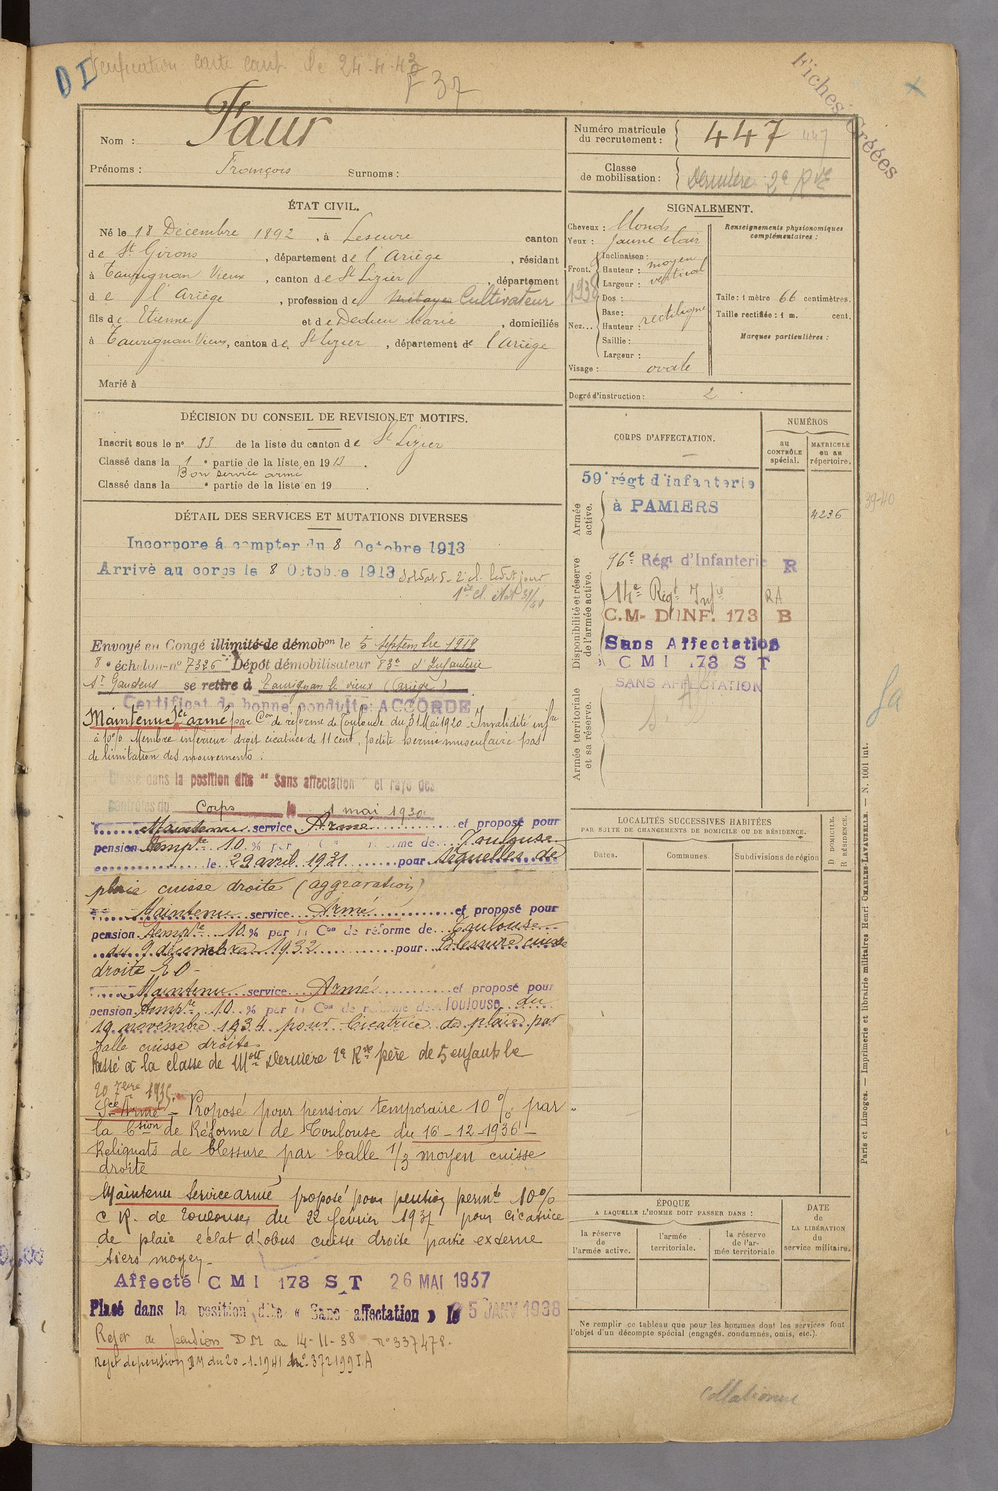 DI
Vérification carte comb. le 24-4-43
F 37
Fiches Créées
Nom : Faur
Prénoms : François Surnoms :
Numéro matricule du recrutement : 447 447
Classe de mobilisation : Dernière 2e Rve
ÉTAT CIVIL.
Né le 18 Décembre 1892, à Lescure canton
de St Girons, département de l'Ariège, résidant
à Taurignan Vieux, canton de St Lizier, département
de l'Ariège, profession de Cultivateur
fils de Etienne et de Dedieu Marie, domiciliés
à Taurignan Vieux, canton de St Lizier, département de l'Ariège
Marié à
SIGNALEMENT.
Cheveux : blonds
Yeux : jaune clair
Front. Inclinaison :
Hauteur : moyen
Largeur : vertical
1938
Nez... Dos :
Base :
Hauteur : rectiligne
Saillie :
Largeur :
Visage : ovale
Renseignements physionomiques complémentaires :
Taille : 1 mètre 66 centimètres.
Taille rectifiée : 1 m. cent.
Marques particulières :
Degré d'instruction : 2
DÉCISION DU CONSEIL DE REVISION ET MOTIFS.
Inscrit sous le n° 33 de la liste du canton de St Lizier
Classé dans la 1e partie de la liste en 1913.
Bon service armé
Classé dans la e partie de la liste en 19 .
DÉTAIL DES SERVICES ET MUTATIONS DIVERSES
Incorporé à compter du 8 Octobre 1913
Arrivé au corps le 8 Octobre 1913 Soldat de 2e cl. ledit jour
Envoyé en Congé illimité de démobon le 5 septembre 1919
8e échelon n° 7326 Dépôt démobilisateur 83e d'Infanterie
St Gaudens se retire à Taurignan le vieux (Ariège)
Certificat de bonne conduite ACCORDÉ
Maintenu Sce armé par Con de réforme de Toulouse du 31 Mai 1920. Invalidité infre
à 10% Membre inférieur droit cicatrice de 11 cent, petite hernie musculaire pas
de limitation des mouvements.
Classé dans la position dite "Sans affectation" et rayé des
contrôles du Corps le 1 mai 1930
Maintenu service Armé et proposé pour
pension tempre 10 % par la Con de réforme de Toulouse
le 29 avril 1931 pour Séquelles de
plaie cuisse droite (aggravation)
Maintenu service Armé et proposé pour
pension tempre 10 % par la Con de réforme de Toulouse
du 9 décembre 1932 pour Blessure cuisse
droite E O -
Maintenu service Armé et proposé pour
pension tempre 10 % par la Con de réforme de Toulouse du
19 novembre 1934 pour Cicatrice de plaie par
balle cuisse droite
Passé à la classe de Mon Dernière 2e Rve père de 5 enfants le
20 7bre 1935
Sce Armé - Proposé pour pension temporaire 10 % par
la Csion de Réforme de Toulouse du 16-12-1936 -
Reliquats de blessure par balle 1/3 moyen cuisse
droite
Maintenu Service armé proposé pour pension permte 10%
C R. de Toulouse du 22 février 1937 pour cicatrice
de plaie éclat d'obus cuisse droite partie externe
tiers moyen -
Affecté C M I 173 S T 26 MAI 1937
Placé dans la position dite « Sans affectation » le 5 JANV 1938
Rejet de pension D M du 14-11-38 n° 337478 -
Rejet de pension DM du 20-1-1941 n° 372199 I A
CORPS D'AFFECTATION.
NUMÉROS
au CONTRÔLE spécial.
MATRICULE ou au répertoire.
Armée active.
59e régt d'infanterie
à PAMIERS
4236
39-40
Disponibilité et réserve de l'armée active.
96e Régt d'Infanterie R
14e Régt Infie RA
C.M- D'INF. 173 B
Sans Affectation
C M I 173 S T
SANS AFFECTATION
Armée territoriale et sa réserve.
LOCALITÉS SUCCESSIVES HABITÉES
PAR SUITE DE CHANGEMENTS DE DOMICILE OU DE RÉSIDENCE.
D DOMICILE.
R RÉSIDENCE.
Dates. Communes. Subdivisions de région
ÉPOQUE
A LAQUELLE L'HOMME DOIT PASSER DANS :
la réserve de l'armée active.
l'armée territoriale.
la réserve de l'armée territoriale
DATE de LA LIBÉRATION du service militaire.
Ne remplir ce tableau que pour les hommes dont les services font l'objet d'un décompte spécial (engagés, condamnés, omis, etc.).
Paris et Limoges. — Imprimerie et librairie militaires Henri CHARLES-LAVAUZELLE. — N. 1001 int.
Collationné